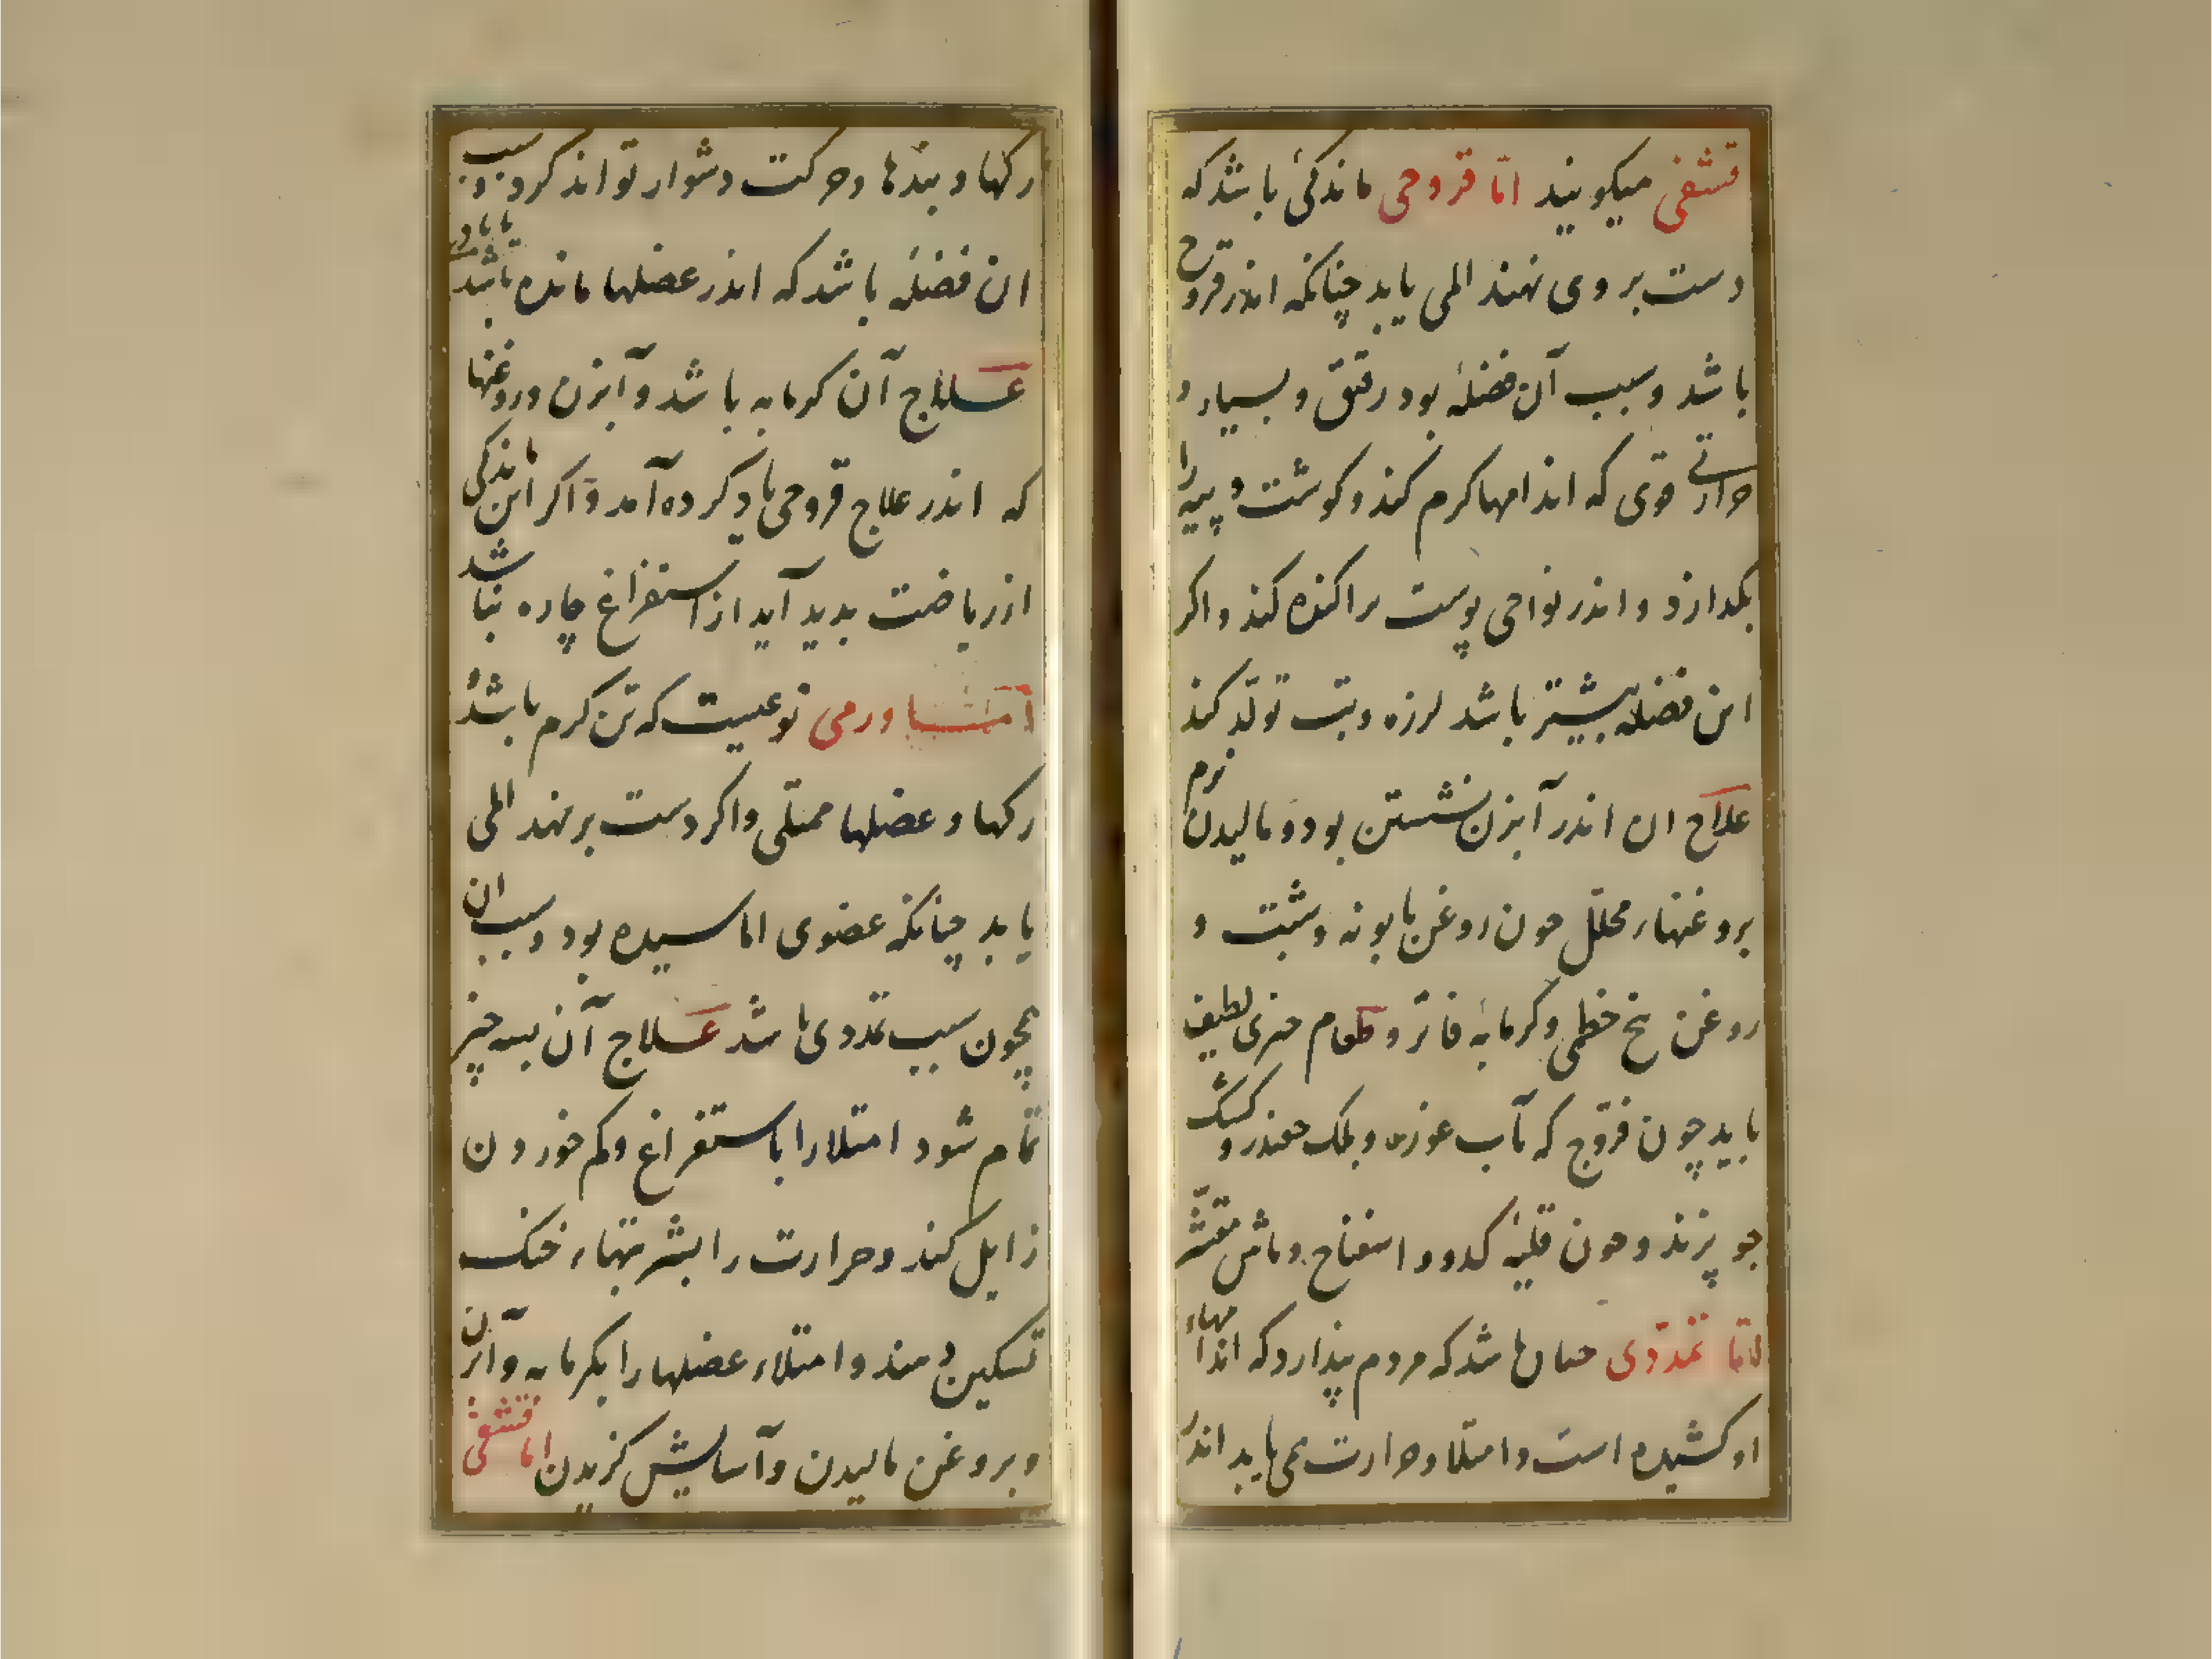 قشفی میکویند امّا قروحی ماندکئ باشد که
دست بر وی نهند المی یابد چنانکه اندر قروح
باشد و سبب آن فضلهٔ بود رقیق و بسیار و
حرارتی قوی که اندامها کرم کند و کوشت و پیه را
بکدازد و اندر نواحی پوست پراکنده کند و اکر
این فضله بیشتر باشد لرزه و تب تولّد کند
علاج ان اندر آبزن نشستن بود و مالیدن نرم
بروغنهاء محلّل چون روغن بابونه و شبت و
روغن بیخ خطمی و کرمابهٔ فاتر و طعام چیزی لطیف
باید چون فرّوج که بآب غوره و بلک چغندر و کشک
جو پزند و چون قلیهٔ کدو و اسفناخ و ماش مقشّر
امّا تمدّدی چنان باشد که مردم پندارد که اندامهاء
او کشیده است و امتلا و حرارت می یابد اندر
رکها و بندها و حرکت دشوار تواند کرد و سبب
ان فضله باشد که اندر عضلها مانده باشد
علاج آن کرمابه باشد و آبزن و روغنها
که اندر علاج قروحی یاد کرده آمد و اکر این ماندکی
از ریاضت پدید آید از استفراغ چاره نباشد
امّا ورمی نوعیست که تن کرم باشد و
رکها و عضلها ممتلی و اکر دست بر نهند المی
یابد چنانکه عضوی اماسیده بود و سبب ان
همچون سبب تمددی باشد علاج آن بسه چیز
تمام شود امتلا را باستفراغ و کم خوردن
زایل کند و حرارت را بشربتهاء خنک
تسکین دهند و امتلاء عضلها را بکرمابه و آبزن
و بروغن مالیدن و آسایش کزیدن اما قشفی